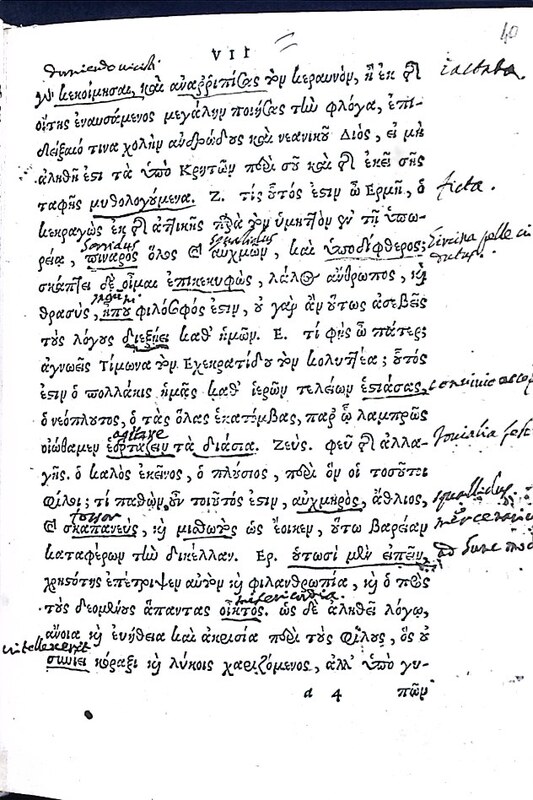 40
VII
γν κεκοίμησαι, καὶ ἀναῤῥιπίσας τὸν κεραυνὸν, ἢ ἐκ τῆς
iactata.
οἴτης ἐναυσάμενος μεγάλην ποιήσας τὴν φλόγα, ἐπι-
δείξαιό τινα χολὴν ἀνδρώδους καὶ νεανικοῦ Διὸς, εἰ μὴ
ἀληθῆ ἐστι τὰ ὑπὸ Κρητῶν περὶ σοῦ καὶ τῆς ἐκεῖ σῆς
ταφῆς μυθολογούμενα. Ζ. τίς οὗτός ἐστιν ὦ Ερμῆ, ὁ
ficta.
κεκραγὼς ἐκ τῆς ἀττικῆς παρὰ τὸν ὑμηττὸν ἐν τῇ ὑπω-
sordidus squalidus
ρείᾳ, πιναρὸς ὅλος καὶ αὐχμῶν, καὶ ὑποδίφθερος;
pelle
σκάπτει δὲ οἶμαι ἐπικεκυφὼς, λάλος ἄνθρωπος, καὶ
θρασὺς, ἤπου φιλόσοφός ἐστιν, οὐ γὰρ ἂν οὕτως ἀσεβεῖς
τοὺς λόγους διεξῄει καθ' ἡμῶν. Ε. τί φῂς ὦ πάτερ;
ἀγνοεῖς Τίμωνα τὸν Εχεκρατίδου τὸν κολυττέα; οὗτός
ἐστιν ὁ πολλάκις ἡμᾶς καθ' ἱερῶν τελείων ἑστιάσας,
ὁ νεόπλουτος, ὁ τὰς ὅλας ἑκατόμβας, παρ' ᾧ λαμπρῶς
εἰώθαμεν ἑορτάζειν τὰ διάσια. Ζεύς. φεῦ τῆς ἀλλα-
Iovialia fest
γῆς. ὁ καλὸς ἐκεῖνος, ὁ πλούσιος, περὶ ὃν οἱ τοσοῦτοι
φίλοι; τί παθὼν οὖν τοιοῦτός ἐστιν, αὐχμηρὸς, ἄθλιος,
squallidus
fossor
καὶ σκαπανεὺς, καὶ μισθωτὸς ὡς ἔοικεν, οὕτω βαρεῖαν
καταφέρων τὴν δίκελλαν. Ερ. οὑτωσὶ μὲν εἰπεῖν,
ad hunc mod
χρηστότης ἐπέτριψεν αὐτὸν καὶ φιλανθρωπία, καὶ ὁ πρὸς
τοὺς δεομένους ἅπαντας οἶκτος. ὡς δὲ ἀληθεῖ λόγῳ,
ἄνοια καὶ εὐήθεια καὶ ἀκρισία περὶ τοὺς φίλους, ὃς οὐ
intellexerit
συνίει κόραξι καὶ λύκοις χαριζόμενος, ἀλλ' ὑπὸ γυ-
a 4 πῶν